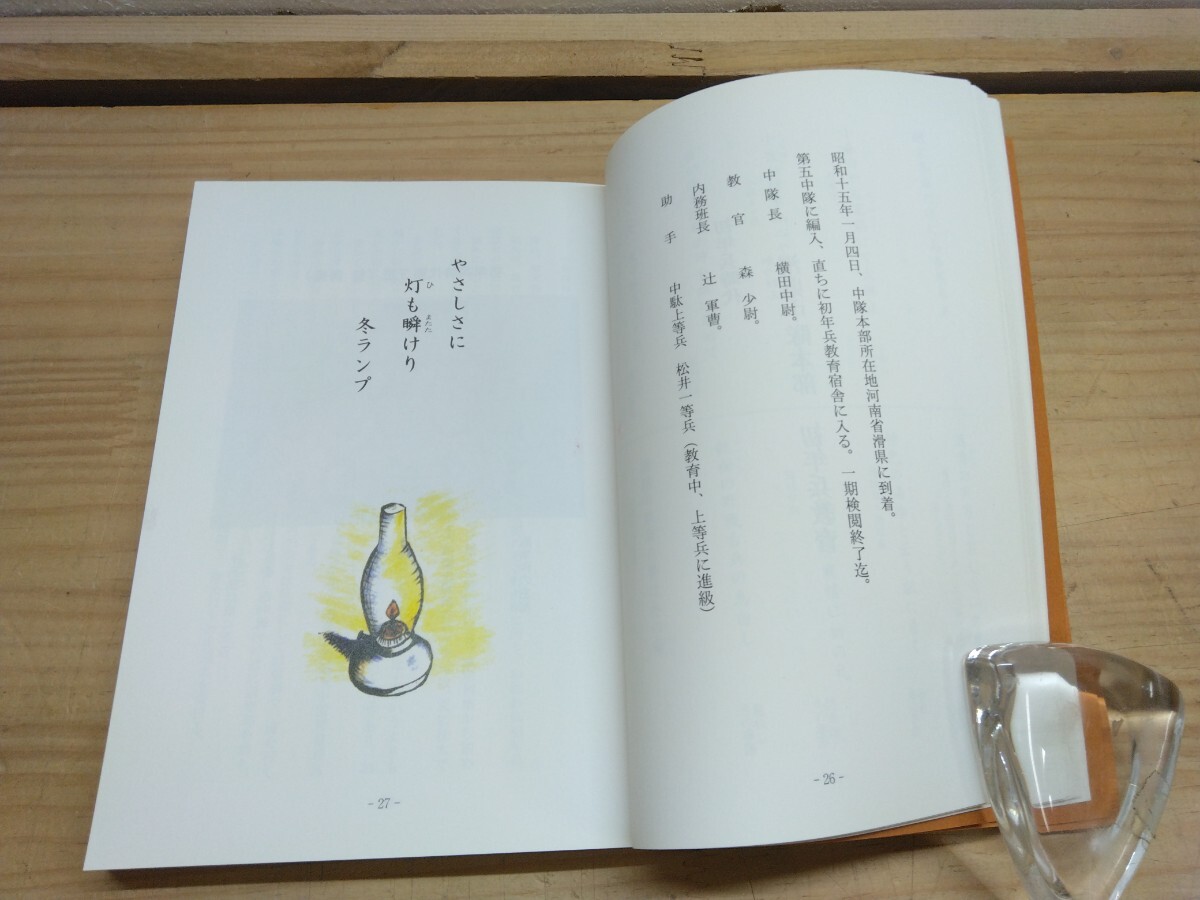 昭和十五年一月四日、中隊本部所在地河南省滑県に到着。
第五中隊に編入、直ちに初年兵教育宿舎に入る。一期検閲終了迄。
中隊長　横田中尉。
教官　森少尉。
内務班長　辻軍曹。
助手　中駄上等兵　松井一等兵（教育中、上等兵に進級）
- 26 -
やさしさに
灯も瞬けり
ひ　またた
冬ランプ
- 27 -